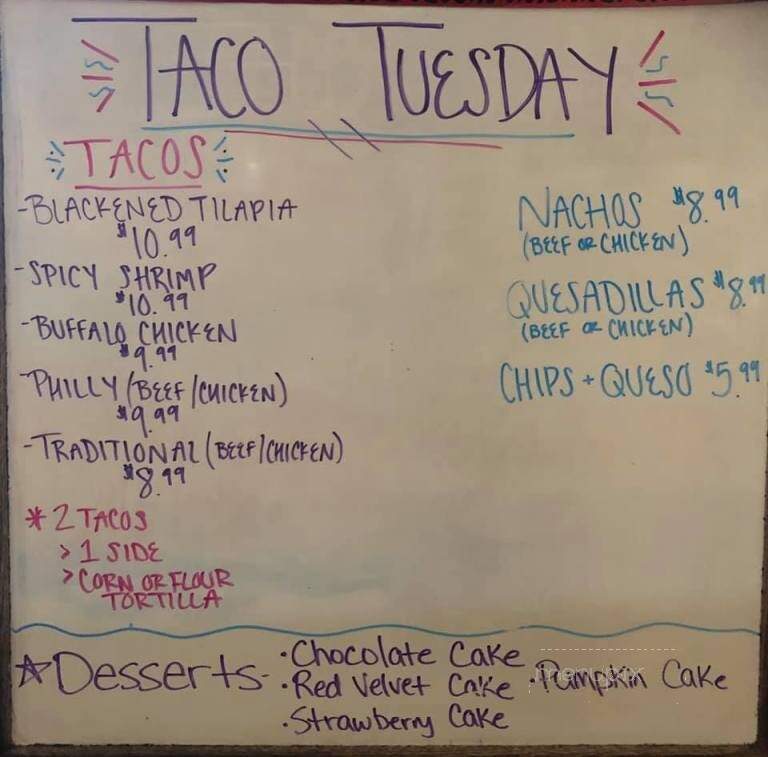 TACO TUESDAY
TACOS
-BLACKENED TILAPIA
$10.99
-SPICY SHRIMP
$10.99
-BUFFALO CHICKEN
$9.99
-PHILLY (BEEF/CHICKEN)
$9.99
-TRADITIONAL (BEEF/CHICKEN)
$8.99
* 2 TACOS
> 1 SIDE
> CORN OR FLOUR
TORTILLA
NACHOS $8.99
(BEEF OR CHICKEN)
QUESADILLAS $8.99
(BEEF OR CHICKEN)
CHIPS + QUESO $5.99
☆Desserts-
•Chocolate Cake
•Red Velvet Cake
•Strawberry Cake
•Pumpkin Cake